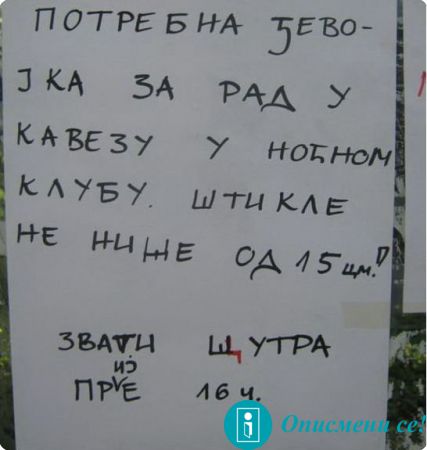 ПОТРЕБНА ЂЕВО-
ЈКА ЗА РАД У
КАВЕЗУ У НОЋНОМ
КЛУБУ. ШТИКЛЕ
НЕ НИЖЕ ОД 15 цм.
ЗВАТИ ЩУТРА
ПРЕ 16 ч.
Описмени се!